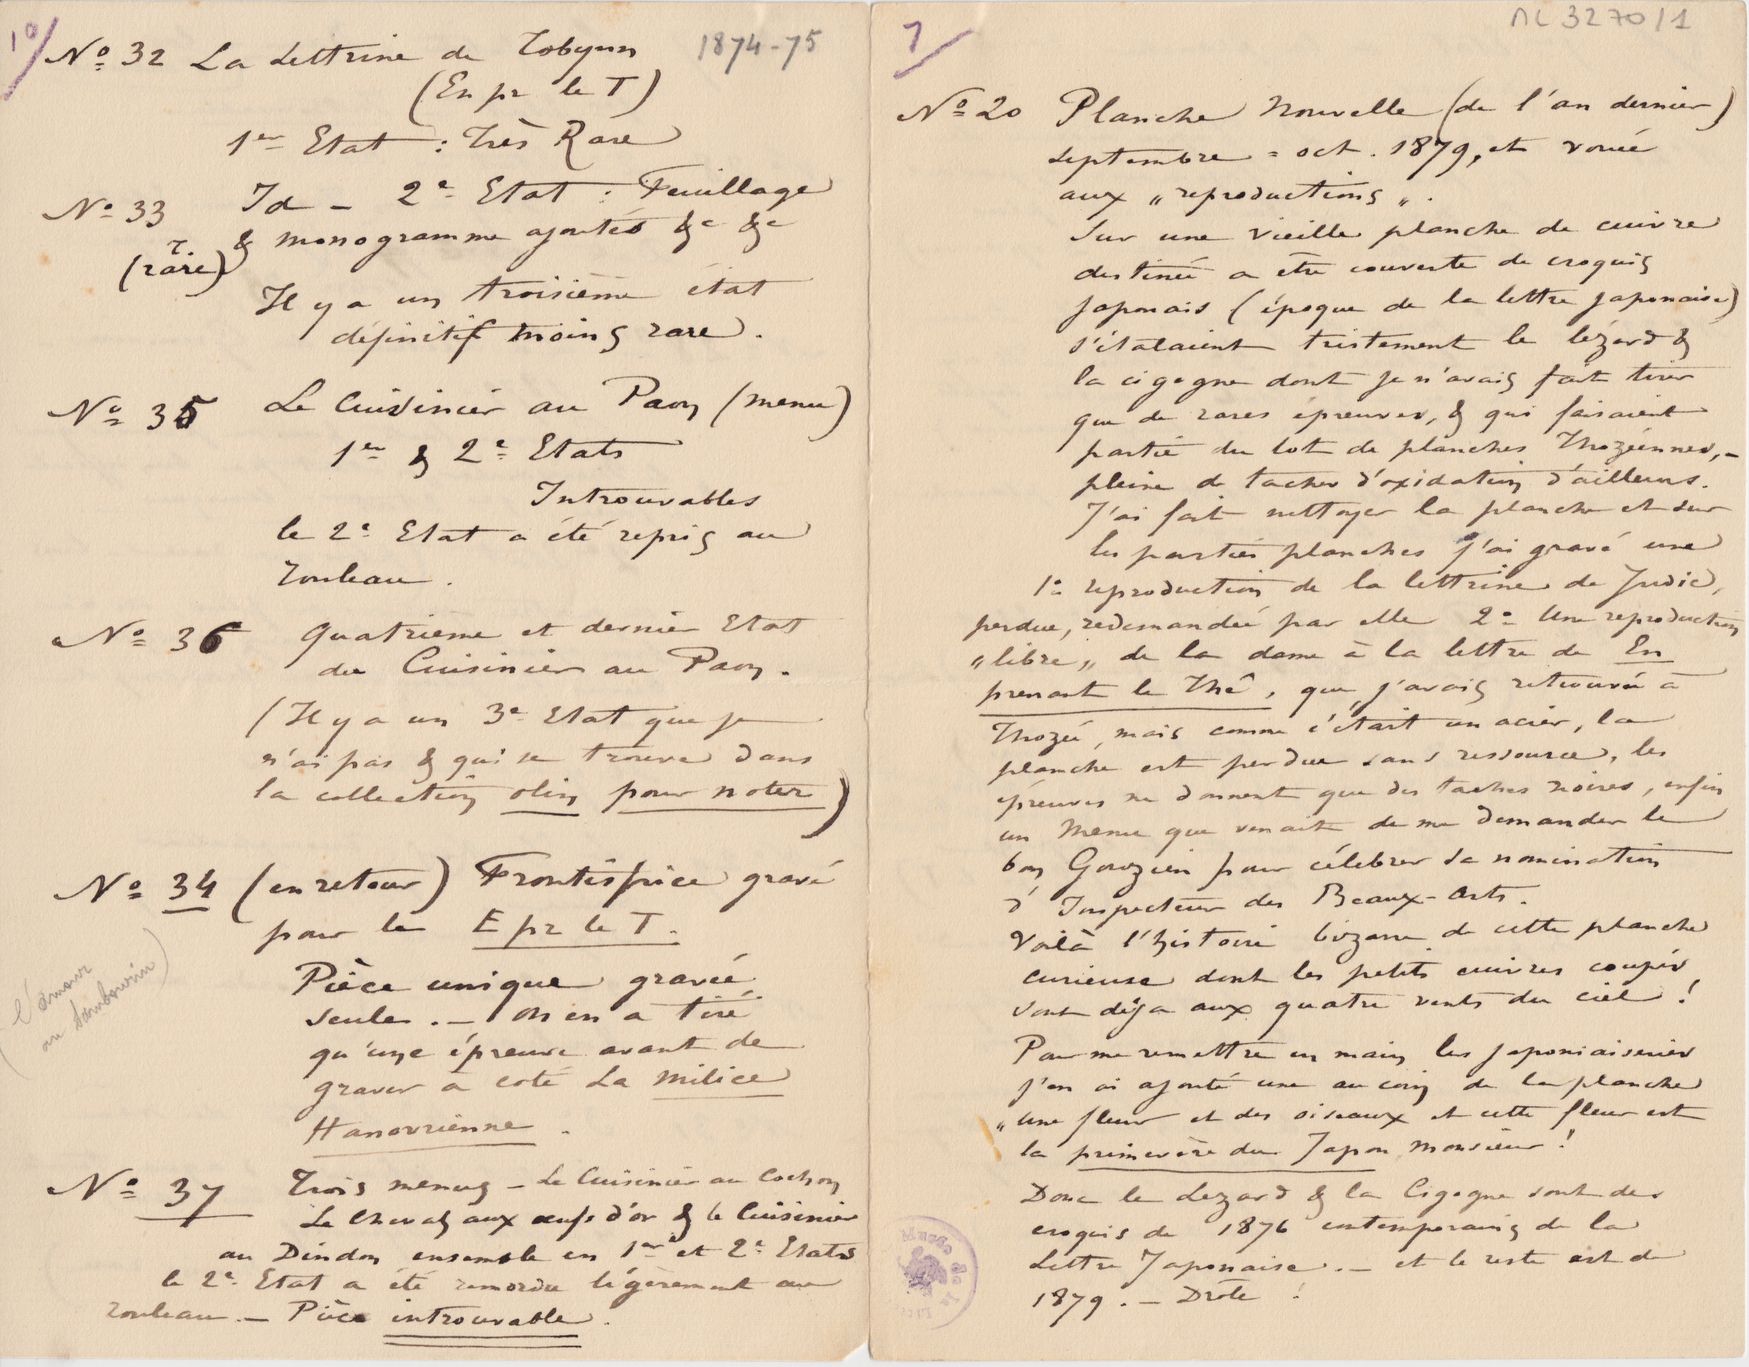 1°/
Nº 32 La Lettrine de Tobynn
1874-75
(En pr le T)
1er Etat : Très Rare
Nº 33 Id – 2e Etat : Feuillage
& monogramme ajoutés &c &c
(T. rare)
Il y a un troisième état
définitif moins rare.
Nº 35 Le Cuisinier au Paon (menu)
1er & 2e Etats
Introuvables
le 2e Etat a été repris au
rouleau.
Nº 36 Quatrième et dernier Etat
du Cuisinier au Paon.
(Il y a un 3e Etat que je
n'ai pas & qui se trouve dans
la collection olin pour noter)
Nº 34 (en retour) Frontispice gravé
pour le E pr le T.
Pièce unique gravée
seule. – On en a tiré
qu'une épreuve avant de
graver à coté La Milice
Hanovrienne.
(l'amour
au tambourin)
Nº 37 Trois menus – Le Cuisinier au Cochon
Le Cheval aux œufs d'or & le Cuisinier
au Dindon ensemble en 1er et 2e Etats
le 2e Etat a été remordu légèrement au
rouleau. – Pièce introuvable.
7/
ML 3270/1
Nº 20 Planche Nouvelle (de l'an dernier)
Septembre = oct. 1879, et vouée
aux „ reproductions „.
Sur une vieille planche de cuivre
destinée a être couverte de croquis
Japonais (époque de la lettre Japonaise)
s'étalaient tristement le lézard &
la cigogne dont je n'avais fait tirer
que de rares épreuves, & qui faisaient
partie du lot de planches Thozéennes, –
pleine de taches d'oxidation d'ailleurs.
J'ai fait nettoyer la planche et sur
les parties planches j'ai gravé une
1º reproduction de la lettrine de Judic,
perdue, redemandée par elle 2º Une reproduction
„ libre „ de la dame à la lettre de En
prenant le Thé, que j'avais retrouvée à
Thozée, mais comme c'était un acier, la
planche est perdue sans ressource, les
épreuves ne donnent que des taches noires, enfin
un Menu que venait de me demander le
bon Gouzien pour célébrer sa nomination
d'Inspecteur des Beaux-Arts.
Voilà l'histoire bizarre de cette planche
curieuse dont les petits cuivres coupés
sont déja aux quatre vents du ciel !
Pour me remettre en main les Japoniaiseries
j'en ai ajouté une au coin de la planche
„ une fleur et des oiseaux et cette fleur est
la primevère du Japon Monsieur !
Donc le Lezard & la Cigogne sont des
croquis de 1876 contemporains de la
Lettre Japonaise. – et le reste est de
1879. – Drôle !